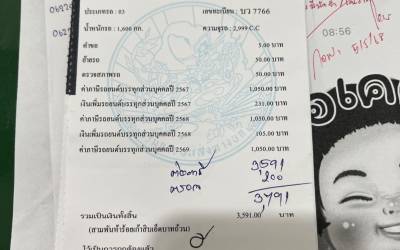 ประเภทรถ : 03 เลขทะเบียน : บว 7766
น้ำหนักรถ : 1,600 กก. ความจุรถ : 2,999 C.C
ค่าขอ 5.00 บาท
ย้ายรถ 50.00 บาท
ตรวจสภาพรถ 50.00 บาท
ค่าภาษีรถยนต์บรรทุกส่วนบุคคลปี 2567 1,050.00 บาท
เงินเพิ่มรถยนต์บรรทุกส่วนบุคคลปี 2567 231.00 บาท
ค่าภาษีรถยนต์บรรทุกส่วนบุคคลปี 2568 1,050.00 บาท
เงินเพิ่มรถยนต์บรรทุกส่วนบุคคลปี 2568 105.00 บาท
ค่าภาษีรถยนต์บรรทุกส่วนบุคคลปี 2569 1,050.00 บาท
3,591
200
3791
รวมเป็นเงินทั้งสิ้น 3,591.00 บาท
(สามพันห้าร้อยเก้าสิบเอ็ดบาทถ้วน)
ไว้เป็นการถูกต้องแล้ว
08:56
5/5/68